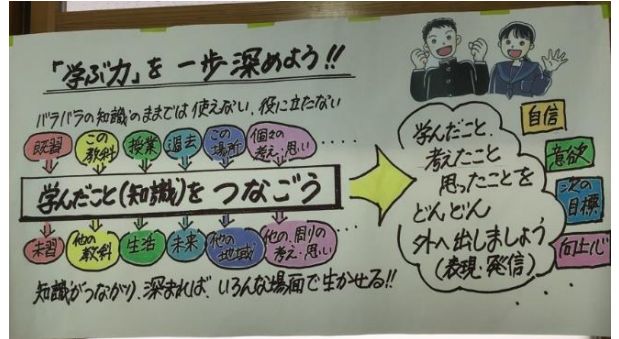 「学ぶ力」を 一歩深めよう!!
バラバラの知識のままでは使えない、役に立たない
既習 この教科 授業 過去 この場所 個々の考え・思い ・・・・
学んだこと(知識)を つなごう
未習 他の教科 生活 未来 他の地域 他の、周りの考え・思い ・・・・
知識がつながり、深まれば、いろんな場面で生かせる!!
学んだこと、
考えたこと
思ったことを
どんどん
外へ出しましょう
(表現・発信)
自信
意欲
次の
目標
向上心